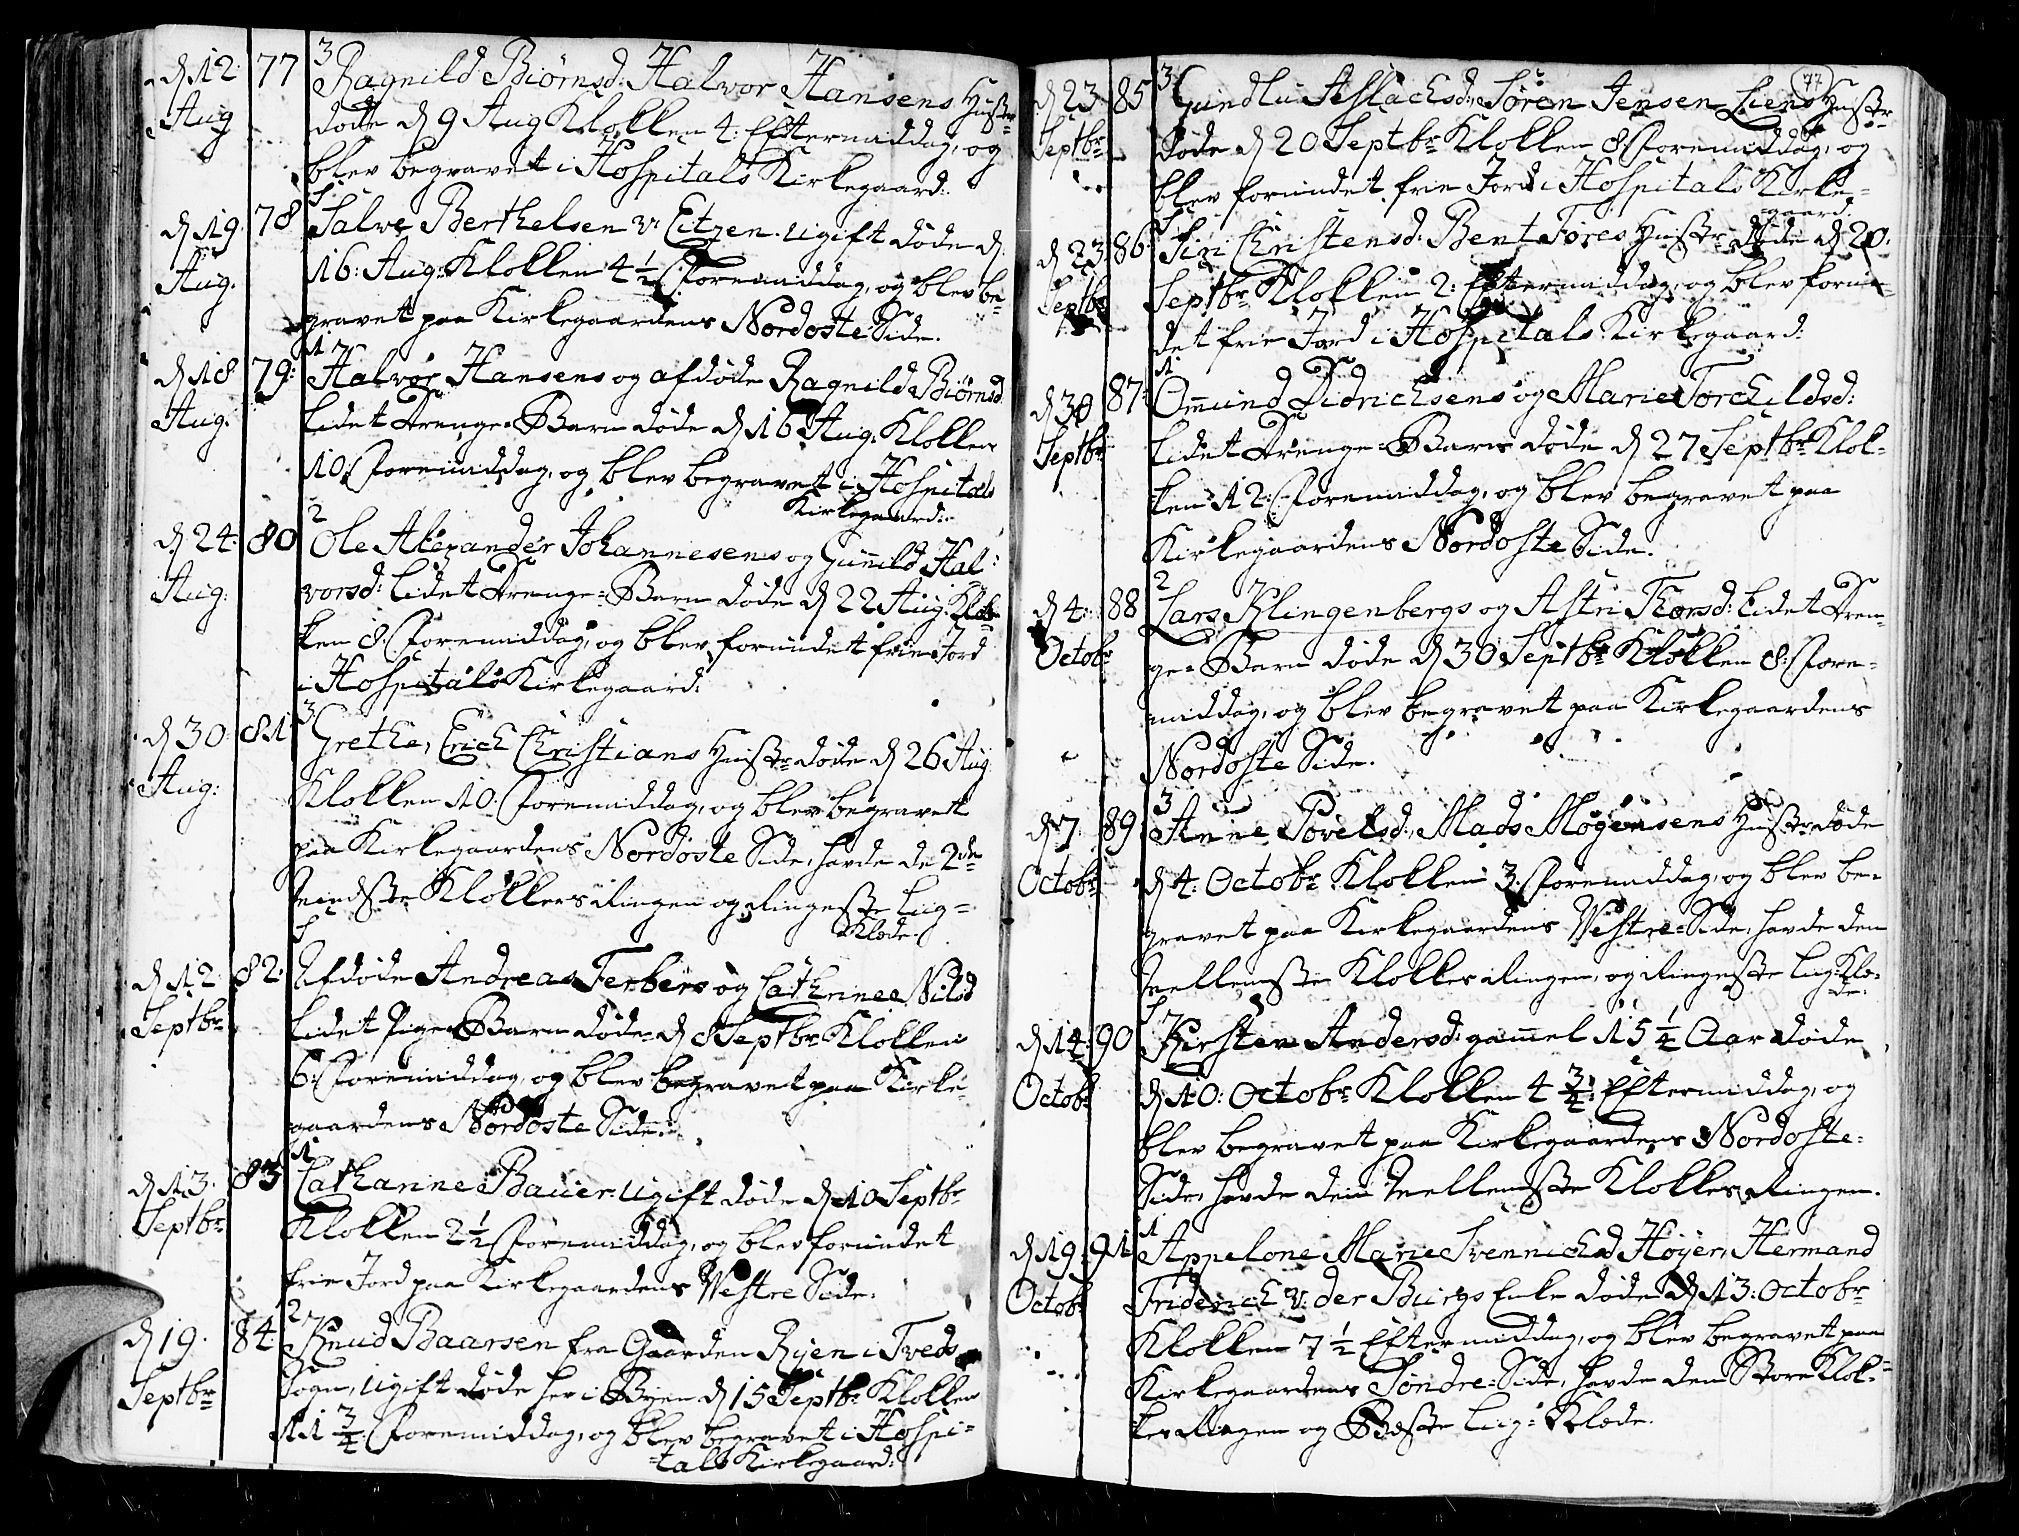 d 12 77 3 Ragnild Biörnsd: Halvor Hansens Hustr:
Aug döde d 9 Aug Klokken 4: Eftermiddag, og
blev begravet i Hospitals Kirkegaard:
d 19 78 Salve Berthelsen v: Eitzen ugift döde d
Aug. 16: Aug: Klokken 4 1/2 Formiddag, og blev be-
gravet paa Kirkegaardens Nordoste Side.
d 18 79: 1 Halvor Hansens og afdöde Ragnild Biörnsd
Aug. lidet Drenge-Barn döde d 16 Aug: Klokken
10: Formiddag, og blev begravet i Hospitals
Kirkegaard:
d 24: 80 2 Ole Alexander Johannesens og Gunild Hal-
Aug: vorsd: lidet Drenge-Barn döde d 22 Aug: Klok-
ken 8. Formiddag, og blev forundet frie Jord
i Hospitals Kirkegaard:
d 30: 81 3 Grethe, Erich Christians Hustr: döde d 26 Aug
Aug: Klokken 10: Formiddag, og blev begravet
paa Kirkegaardens Nordoste Side, havde de 2de
Mindste Klokkers Ringen og Ringeste Liig-
Klæde.
d 12 82: Afdöde Andreas Ferbers og Cathrinee Nilsd
Septbr lidet Pige-Barn döde d 8 Septbr Klokken
6: Formiddag, og blev begravet paa Kirke-
gaardens Nordoste Side.
d 13. 83 1 Cathanne Bauer ugift döde d 10 Septbr
Septbr Klokken 2 1/2 Formiddag, og blev forundet
frie Jord paa Kirkegaardens Vestre Side.
d 19. 84 2 Knud Baarsen fra Gaarden Ryen i Tveds
Septbr Sogn, ugift döde her i Byen d 15 Septbr Klokken
11 3/4 Formiddag, og blev begravet i Hospi-
tals Kirkegaard:
77
d 23 85 3 Gundlu Aslachsd: Sören Jensen Liens Hustr
Septbr döde d 20 Septbr Klokken 8 Formiddag, og
blev forundet frie Jord i Hospitals Kirke-
gaard.
d 23 86 Siri Christensd: Bent Föres Hustr: döde d 20:
Septbr Septbr Klokken 2: Eftermiddag, og blev forun-
det frie Jord i Hospitals Kirkegaard:
d 30 87: 1 Omund Didrichsens og Marie Torchildsd:
Septbr lidet Drenge-Barn döde d 27 Septbr Klok-
ken 12: Formiddag, og blev begravet paa
Kirkegaardens Nordoste Side.
d 4: 88 2 Lars Klingenbergs og Astri Thorsd: lidet Dren-
Octobr ge-Barn döde d 30 Septbr Klokken 8: For-
middag, og blev begravet paa Kirkegaardens
Nordoste Side.
d 7. 89 3 Anne Povelsd: Mads Mogensens Hustr: döde
Octobr d 4: Octobr Klokken 3. Formiddag, og blev be-
gravet paa Kirkegaardens Vestre-Side, havde den
Mellemste Klokkes Ringen, og Ringeste Liig-Klæ-
de.
d 14: 90 Kirsten Andersd: gammel 15 1/4 Aar döde
Octobr d 10: Octobr Klokken 4 3/4: Eftermiddag, og
blev begravet paa Kirkegaardens Nordoste-
Side, havde den Mellemste Klokkes Ringen.
d 19: 91 1 Appelone Marie Svenniched Höyer, Hermand
Octobr Friderich v: der Burgs Enke döde d 13: Octobr
Klokken 7 1/2 Eftermiddag, og blev begravet paa
Kirkegaardens Söndre-Side, havde den Store Klok-
kes Ringen og Beste Liig-Klæde.